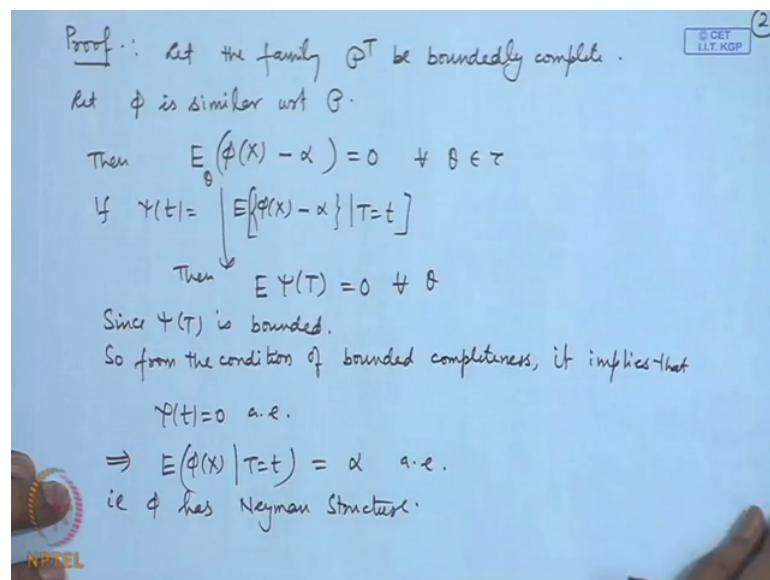 2
© CET
I.I.T. KGP
Proof: Let the family 𝒫^T be boundedly complete.
Let ϕ is similar wrt 𝒫.
Then E_θ(ϕ(X) − α) = 0 ∀ θ ∈ τ
If ψ(t) = E[{ϕ(X) − α} | T=t]
Then E ψ(T) = 0 ∀ θ
Since ψ(T) is bounded.
So from the condition of bounded completeness, it implies that
ψ(t) = 0 a.e.
⇒ E(ϕ(X) | T=t) = α a.e.
ie ϕ has Neyman Structure.
NPTEL